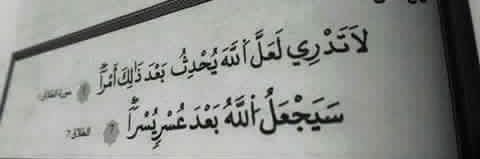 لَا تَدْرِي لَعَلَّ اللَّهَ يُحْدِثُ بَعْدَ ذَٰلِكَ أَمْرًا
سَيَجْعَلُ اللَّهُ بَعْدَ عُسْرٍ يُسْرًا ٧ الطلاق ٧